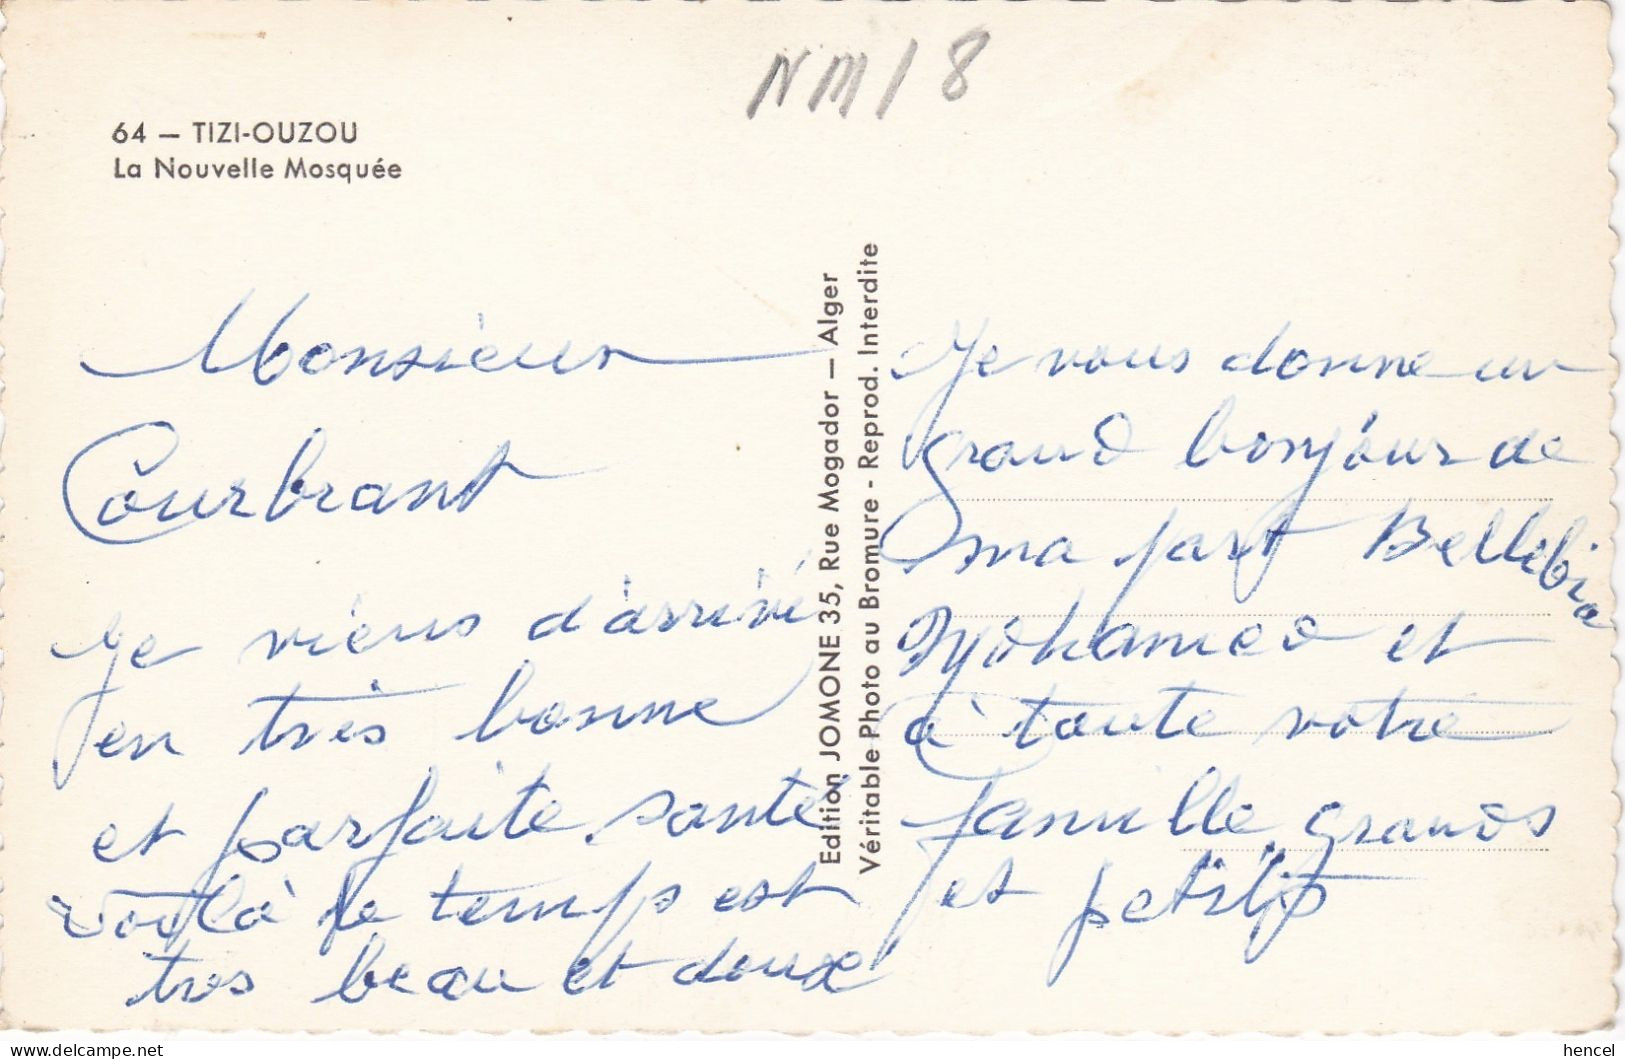 NM18
64 — TIZI-OUZOU
La Nouvelle Mosquée
Monsieur
Courbrant
Je viens d'arrivé
en très bonne
et parfaite santé
voilà le temps est
tres beau et doux
Edition JOMONE 35, Rue Mogador — Alger
Véritable Photo au Bromure - Reprod. Interdite
Je vous donne un
grand bonjour de
ma part
Mohamed et
à toute votre
famille grands
et petits
delcampe.net
hencel